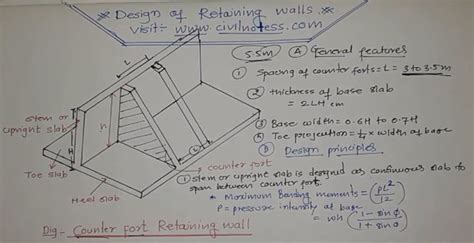 * Design of Retaining walls *
visit:- www.civilnotess.com
5.5m
Ⓐ General features
① Spacing of counter forts = L = 3 to 3.5m
② thickness of base slab
= 2LH cm
③ Base width = 0.6H to 0.7H
⑤ Toe projection = ¼ × width of base
Ⓑ Design principles
① stem or upright slab is designed as continuous slab to
span between counter fort.
* Maximum Banding moments = (pL²/12)
P = pressure intensity at base
= wh (1 - sinϕ / 1 + sinϕ)
L
L
stem or
upright slab
h
H
Toe slab
Heel slab
counter fort
Dig:- Counter fort Retaining wall